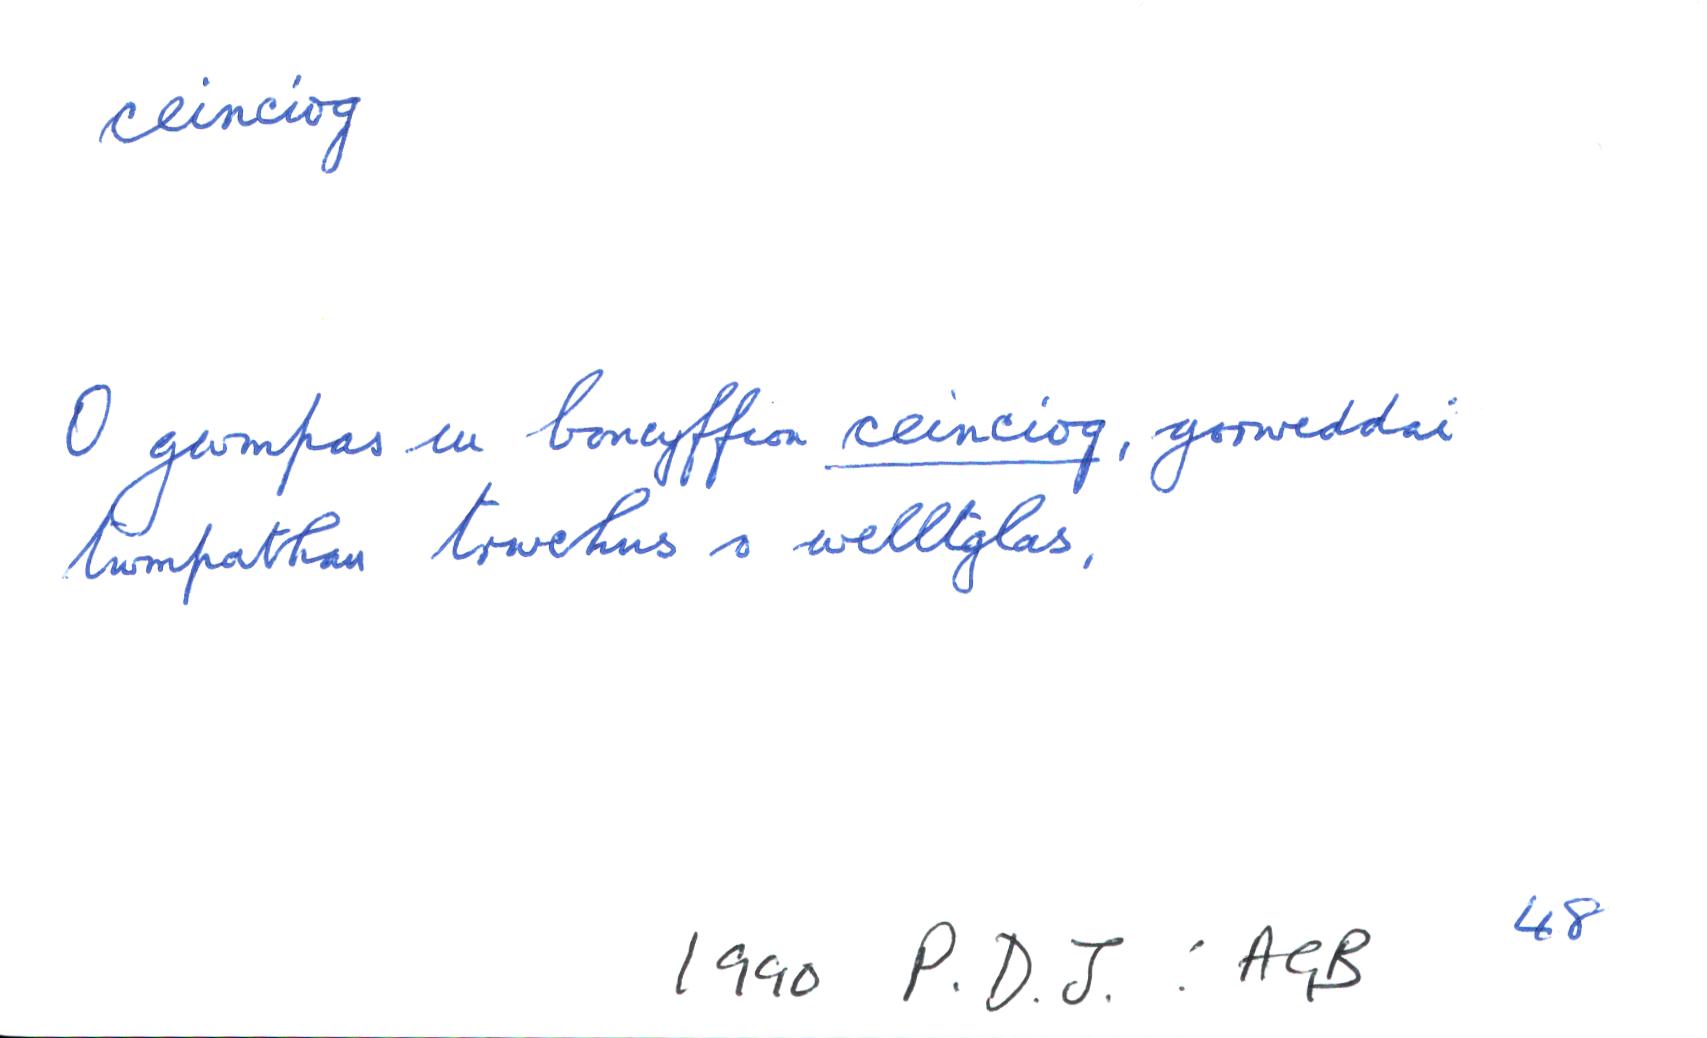 ceinciog
O gwmpas eu boncyffion ceinciog, gorweddai
twmpathau trwchus o welltglas,
48
1990 P.D.J. : AGB